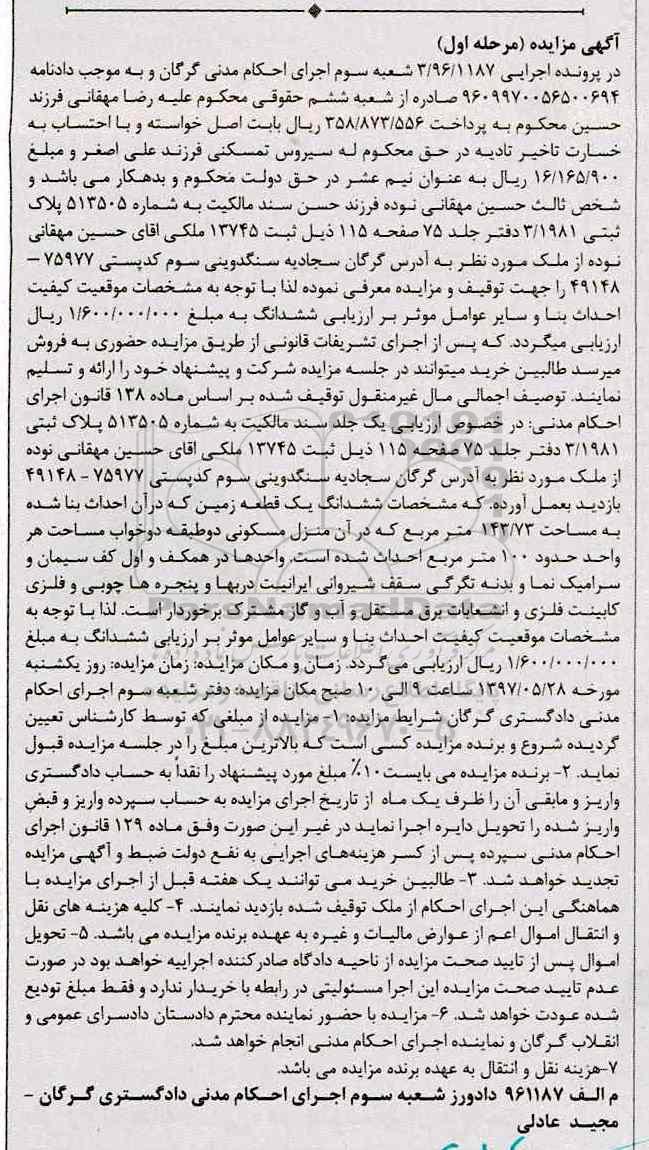 آگهی مزایده (مرحله اول)
در پرونده اجرایی ۳/۹۶/۱۱۸۷ شعبه سوم اجرای احکام مدنی گرگان و به موجب دادنامه
۹۶۰۹۹۷۰۰۵۶۵۰۰۶۹۴ صادره از شعبه ششم حقوقی محکوم علیه رضا مهقانی فرزند
حسین محکوم به پرداخت ۳۵۸/۸۷۳/۵۵۶ ریال بابت اصل خواسته و با احتساب به
خسارت تاخیر تادیه در حق محکوم له سیروس تمسکنی فرزند علی اصغر و مبلغ
۱۶/۱۶۵/۹۰۰ ریال به عنوان نیم عشر در حق دولت محکوم و بدهکار می باشد و
شخص ثالث حسین مهقانی نوده فرزند حسن سند مالکیت به شماره ۵۱۳۵۰۵ پلاک
ثبتی ۳/۱۹۸۱ دفتر جلد ۷۵ صفحه ۱۱۵ ذیل ثبت ۱۳۷۴۵ ملکی اقای حسین مهقانی
نوده از ملک مورد نظر به آدرس گرگان سجادیه سنگدوینی سوم کدپستی ۷۵۹۷۷ –
۴۹۱۴۸ را جهت توقیف و مزایده معرفی نموده لذا با توجه به مشخصات موقعیت کیفیت
احداث بنا و سایر عوامل موثر بر ارزیابی ششدانگ به مبلغ ۱/۶۰۰/۰۰۰/۰۰۰ ریال
ارزیابی میگردد. که پس از اجرای تشریفات قانونی از طریق مزایده حضوری به فروش
میرسد طالبین خرید میتوانند در جلسه مزایده شرکت و پیشنهاد خود را ارائه و تسلیم
نمایند. توصیف اجمالی مال غیرمنقول توقیف شده بر اساس ماده ۱۳۸ قانون اجرای
احکام مدنی: در خصوص ارزیابی یک جلد سند مالکیت به شماره ۵۱۳۵۰۵ پلاک ثبتی
۳/۱۹۸۱ دفتر جلد ۷۵ صفحه ۱۱۵ ذیل ثبت ۱۳۷۴۵ ملکی اقای حسین مهقانی نوده
از ملک مورد نظر به آدرس گرگان سجادیه سنگدوینی سوم کدپستی ۷۵۹۷۷ - ۴۹۱۴۸
بازدید بعمل آورده. که مشخصات ششدانگ یک قطعه زمین که درآن احداث بنا شده
به مساحت ۱۴۳/۷۳ متر مربع که در آن منزل مسکونی دوطبقه دوخواب مساحت هر
واحد حدود ۱۰۰ متر مربع احداث شده است. واحدها در همکف و اول کف سیمان و
سرامیک نما و بدنه تگرگی سقف شیروانی ایرانیت دربها و پنجره ها چوبی و فلزی
کابینت فلزی و انشعابات برق مستقل و آب و گاز مشترک برخوردار است. لذا با توجه به
مشخصات موقعیت کیفیت احداث بنا و سایر عوامل موثر بر ارزیابی ششدانگ به مبلغ
۱/۶۰۰/۰۰۰/۰۰۰ ریال ارزیابی می‌گردد. زمان و مکان مزایده: زمان مزایده: روز یکشنبه
مورخه ۱۳۹۷/۰۵/۲۸ ساعت ۹ الی ۱۰ صبح مکان مزایده: دفتر شعبه سوم اجرای احکام
مدنی دادگستری گرگان شرایط مزایده: ۱- مزایده از مبلغی که توسط کارشناس تعیین
گردیده شروع و برنده مزایده کسی است که بالاترین مبلغ را در جلسه مزایده قبول
نماید. ۲- برنده مزایده می بایست ۱۰٪ مبلغ مورد پیشنهاد را نقداً به حساب دادگستری
واریز و مابقی آن را ظرف یک ماه از تاریخ اجرای مزایده به حساب سپرده واریز و قبض
واریز شده را تحویل دایره اجرا نماید در غیر این صورت وفق ماده ۱۲۹ قانون اجرای
احکام مدنی سپرده پس از کسر هزینه‌های اجرایی به نفع دولت ضبط و آگهی مزایده
تجدید خواهد شد. ۳- طالبین خرید می توانند یک هفته قبل از اجرای مزایده با
هماهنگی این اجرای احکام از ملک توقیف شده بازدید نمایند. ۴- کلیه هزینه های نقل
و انتقال اموال اعم از عوارض مالیات و غیره به عهده برنده مزایده می باشد. ۵- تحویل
اموال پس از تایید صحت مزایده از ناحیه دادگاه صادرکننده اجراییه خواهد بود در صورت
عدم تایید صحت مزایده این اجرا مسئولیتی در رابطه با خریدار ندارد و فقط مبلغ تودیع
شده عودت خواهد شد. ۶- مزایده با حضور نماینده محترم دادستان دادسرای عمومی و
انقلاب گرگان و نماینده اجرای احکام مدنی انجام خواهد شد.
۷-هزینه نقل و انتقال به عهده برنده مزایده می باشد.
م الف ۹۶۱۱۸۷ دادورز شعبه سوم اجرای احکام مدنی دادگستری گرگان –
مجید عادلی
ParsNamadData
۰۲۱-۸۸۳۴۹۶۷۰-۵